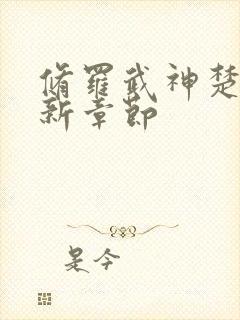 脩羅武神楚
新章節
是今